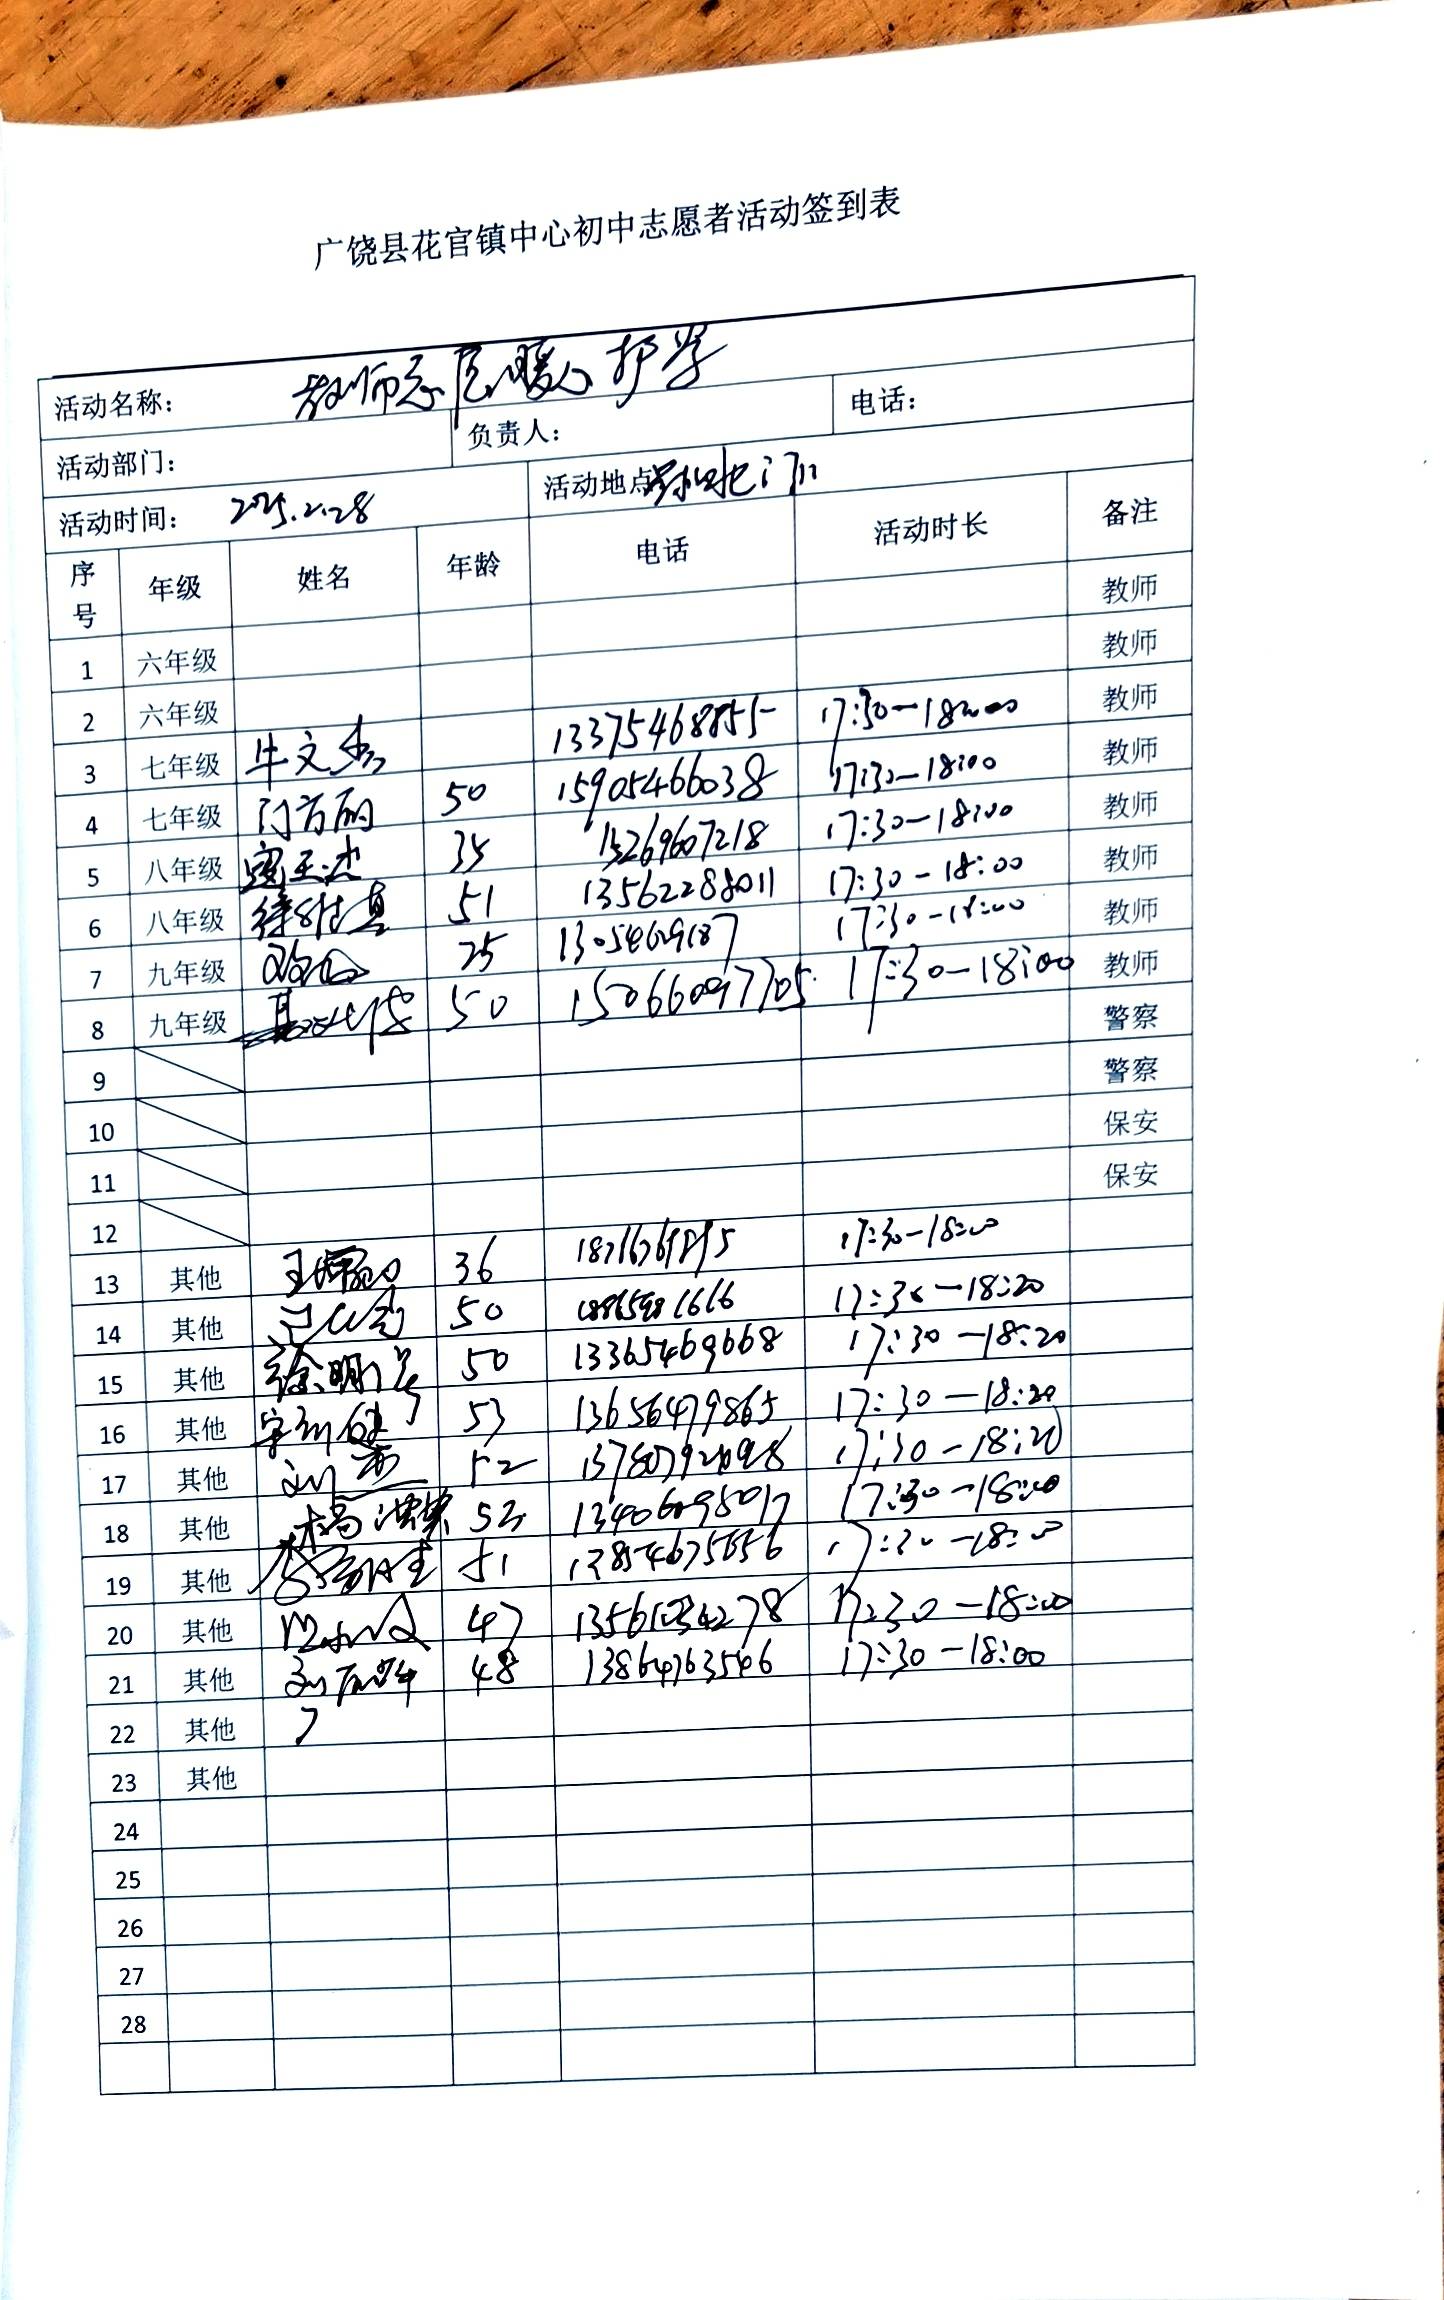 广饶县花官镇中心初中志愿者活动签到表
活动名称： 教师志愿暖心护学
活动部门： 负责人： 电话：
活动时间： 2025.2.28 活动地点 学校门口
序号 年级 姓名 年龄 电话 活动时长 备注
教师
1 六年级 教师
2 六年级 教师
3 七年级 牛文杰 13375468855 17:30-18:00 教师
4 七年级 门方丽 50 15905466038 17:30-18:00 教师
5 八年级 35 15269607218 17:30-18:00 教师
6 八年级 51 13562288011 17:30-18:00 教师
7 九年级 25 17:30-18:00 教师
8 九年级 50 15066097705 17:30-18:00 警察
9 警察
10 保安
11 保安
12
13 其他 36 17:30-18:00
14 其他 50 17:30-18:20
15 其他 徐明 50 13365469668 17:30-18:20
16 其他 53 13656479865 17:30-18:20
17 其他 刘 52 17:30-18:20
18 其他 52 17:30-18:00
19 其他 51 13854675656 17:30-18:00
20 其他 47 17:30-18:00
21 其他 刘 48 13864763546 17:30-18:00
22 其他
23 其他
24
25
26
27
28